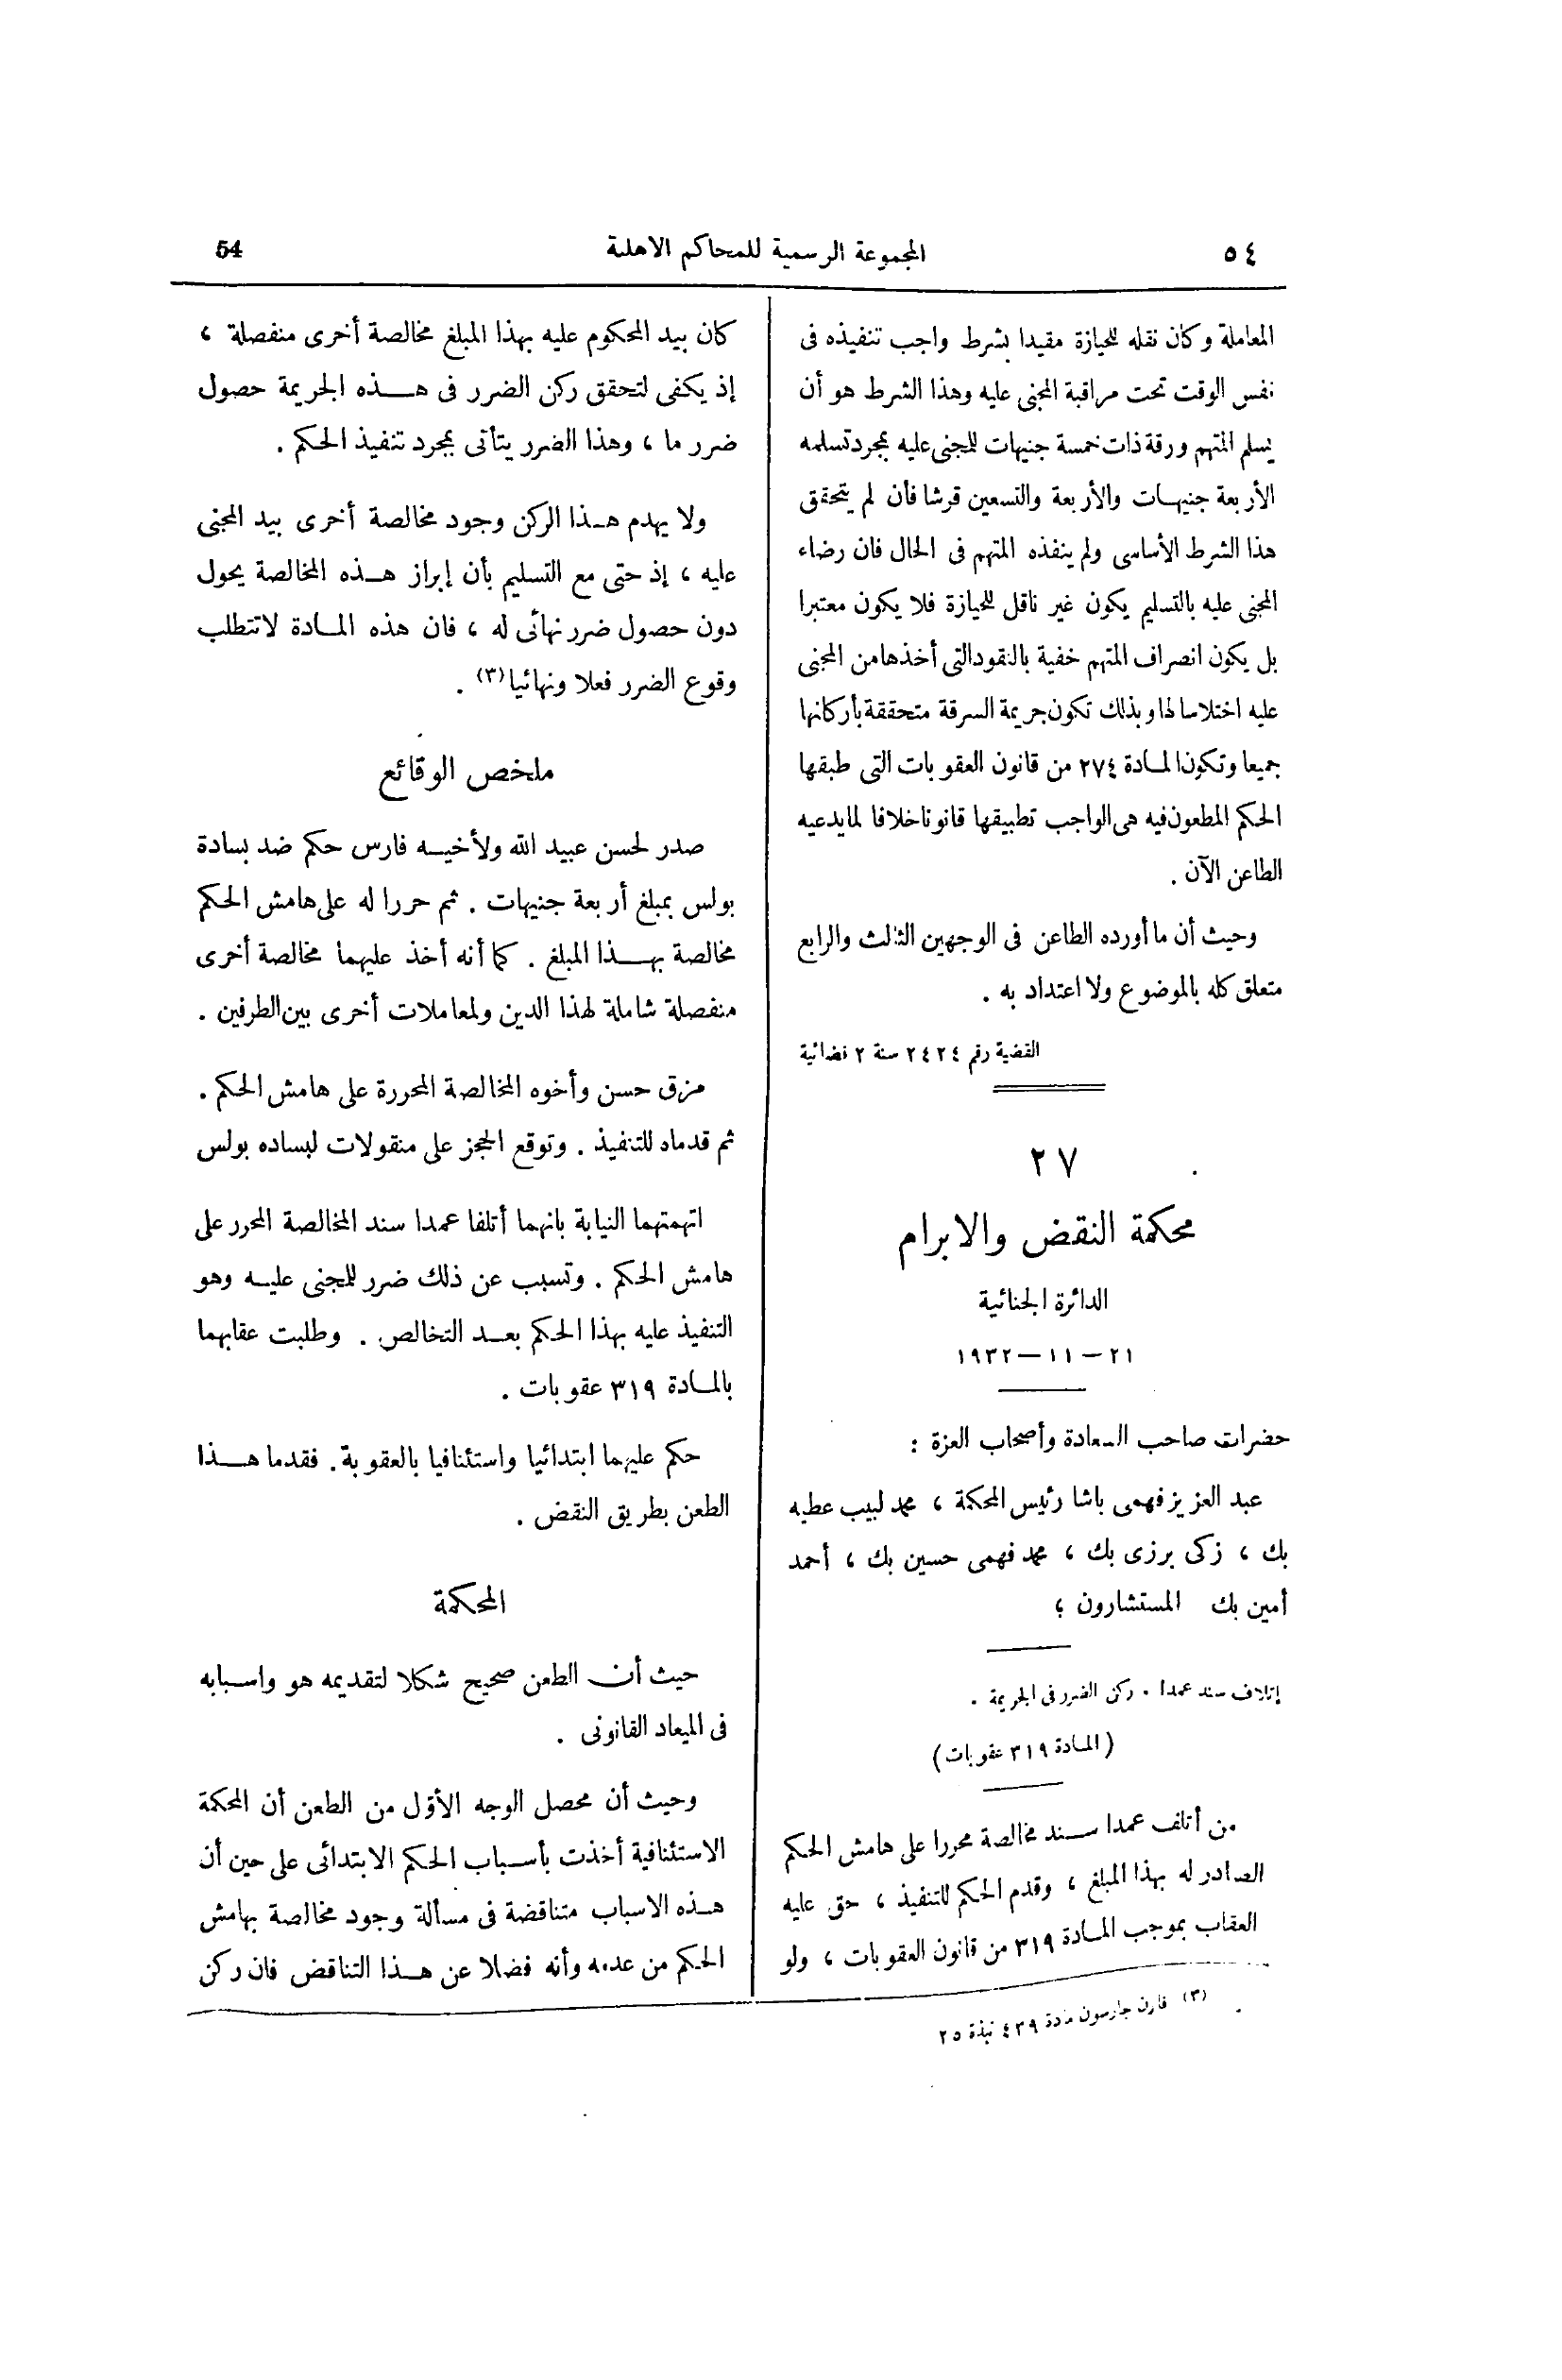 ٥٤ المجموعة الرسمية للمحاكم الاهلية 54
المعاملة وكان نقله للحيازة مقيدا بشرط واجب تنفيذه فى
نفس الوقت تحت مراقبة المجنى عليه وهذا الشرط هو أن
يسلم المتهم ورقة ذات خمسة جنيهات للمجنى عليه بمجرد تسلمه
الأربعة جنيهات والأربعة والتسعين قرشا فأن لم يتحقق
هذا الشرط الأساسى ولم ينفذه المتهم فى الحال فان رضاء
المجنى عليه بالتسليم يكون غير ناقل للحيازة فلا يكون معتبرا
بل يكون انصراف المتهم خفية بالنقود التى أخذها من المجنى
عليه اختلاسا لها وبذلك تكون جريمة السرقة متحققة بأركانها
جميعا وتكون المادة ٢٧٤ من قانون العقوبات التى طبقها
الحكم المطعون فيه هى الواجب تطبيقها قانونا خلافا لما يدعيه
الطاعن الآن .
وحيث أن ما أورده الطاعن فى الوجهين الثالث والرابع
متعلق كله بالموضوع ولا اعتداد به .
القضية رقم ٢٤٢٤ سنة ٢ قضائية
٢٧
محكمة النقض والابرام
الدائرة الجنائية
٢١ — ١١ — ١٩٣٢
حضرات صاحب السعادة وأصحاب العزة :
عبد العزيز فهمى باشا رئيس المحكمة ، محمد لبيب عطيه
بك ، زكى برزى بك ، محمد فهمى حسين بك ، أحمد
أمين بك المستشارون ؛
إتلاف سند عمدا . ركن الضرر فى الجريمة .
(المادة ٣١٩ عقوبات)
من أتلف عمدا سند مخالصة محررا على هامش الحكم
الصادر له بهذا المبلغ ، وقدم الحكم للتنفيذ ، حق عليه
العقاب بموجب المادة ٣١٩ من قانون العقوبات ، ولو
كان بيد المحكوم عليه بهذا المبلغ مخالصة أخرى منفصلة ،
إذ يكفى لتحقق ركن الضرر فى هذه الجريمة حصول
ضرر ما ، وهذا الضرر يتأتى بمجرد تنفيذ الحكم .
ولا يهدم هذا الركن وجود مخالصة أخرى بيد المجنى
عليه ، إذ حتى مع التسليم بأن إبراز هذه المخالصة يحول
دون حصول ضرر نهائى له ، فان هذه المادة لا تتطلب
وقوع الضرر فعلا ونهائيا (٣) .
ملخص الوقائع
صدر لحسن عبيد الله ولأخيه فارس حكم ضد بسادة
بولس بمبلغ أربعة جنيهات . ثم حررا له على هامش الحكم
مخالصة بهذا المبلغ . كما أنه أخذ عليهما مخالصة أخرى
منفصلة شاملة لهذا الدين ولمعاملات أخرى بين الطرفين .
مزق حسن وأخوه المخالصة المحررة على هامش الحكم .
ثم قدماه للتنفيذ . وتوقع الحجز على منقولات لبساده بولس
اتهمتهما النيابة بانهما أتلفا عمدا سند المخالصة المحرر على
هامش الحكم . وتسبب عن ذلك ضرر للمجنى عليه وهو
التنفيذ عليه بهذا الحكم بعد التخالص . وطلبت عقابهما
بالمادة ٣١٩ عقوبات .
حكم عليهما ابتدائيا واستئنافيا بالعقوبة . فقدما هذا
الطعن بطريق النقض .
المحكمة
حيث أن الطعن صحيح شكلا لتقديمه هو واسبابه
فى الميعاد القانونى .
وحيث أن محصل الوجه الأول من الطعن أن المحكمة
الاستئنافية أخذت بأسباب الحكم الابتدائى على حين أن
هذه الاسباب متناقضة فى مسألة وجود مخالصة بهامش
الحكم من عدمه وأنه فضلا عن هذا التناقض فان ركن
(٣) قارن جارسون مادة ٤٣٩ نبذة ٢٥